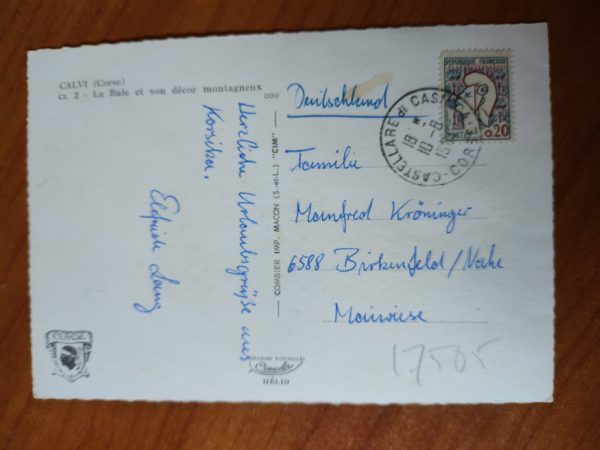 CALVI (Corse)
ct. 2 - La Baie et son décor montagneux
Herzliche Urlaubsgrüße aus
Korsika.
COMBIER IMP. MACON (S.-et-L.) "CIM"
REPUBLIQUE FRANÇAISE
0,20
POSTES
CASTELLARE di CASINCA
18 H
10-8
CORSE
Deutschland
Familie
Manfred Kröninger
6588 Birkenfeld/Nahe
Mainwiese
17505
CORSE
HÉLIO